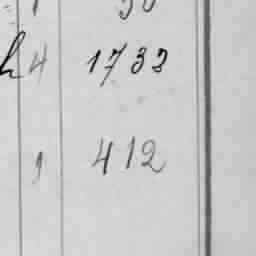 h 4 1733
1 412